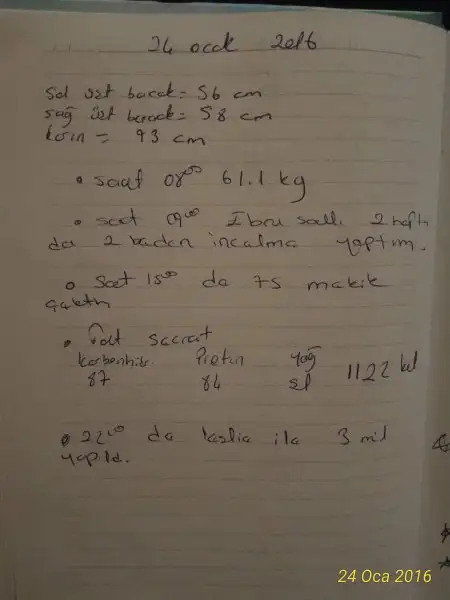 24 ocak 2016
Sol üst bacak = 56 cm
sağ üst bacak = 58 cm
karın = 93 cm
• saat 08⁰⁰ 61.1 kg
• saat 09⁰⁰ Ebru Şallı 2 hafta
da 2 beden incelme yaptım.
• Saat 15⁰⁰ da 75 mekik
çektim
• Fat secret
karbonhidr. Protein Yağ
87 84 51 1122 kal
• 22⁰⁰ da Leslie ile 3 mil
yapıldı.
24 Oca 2016